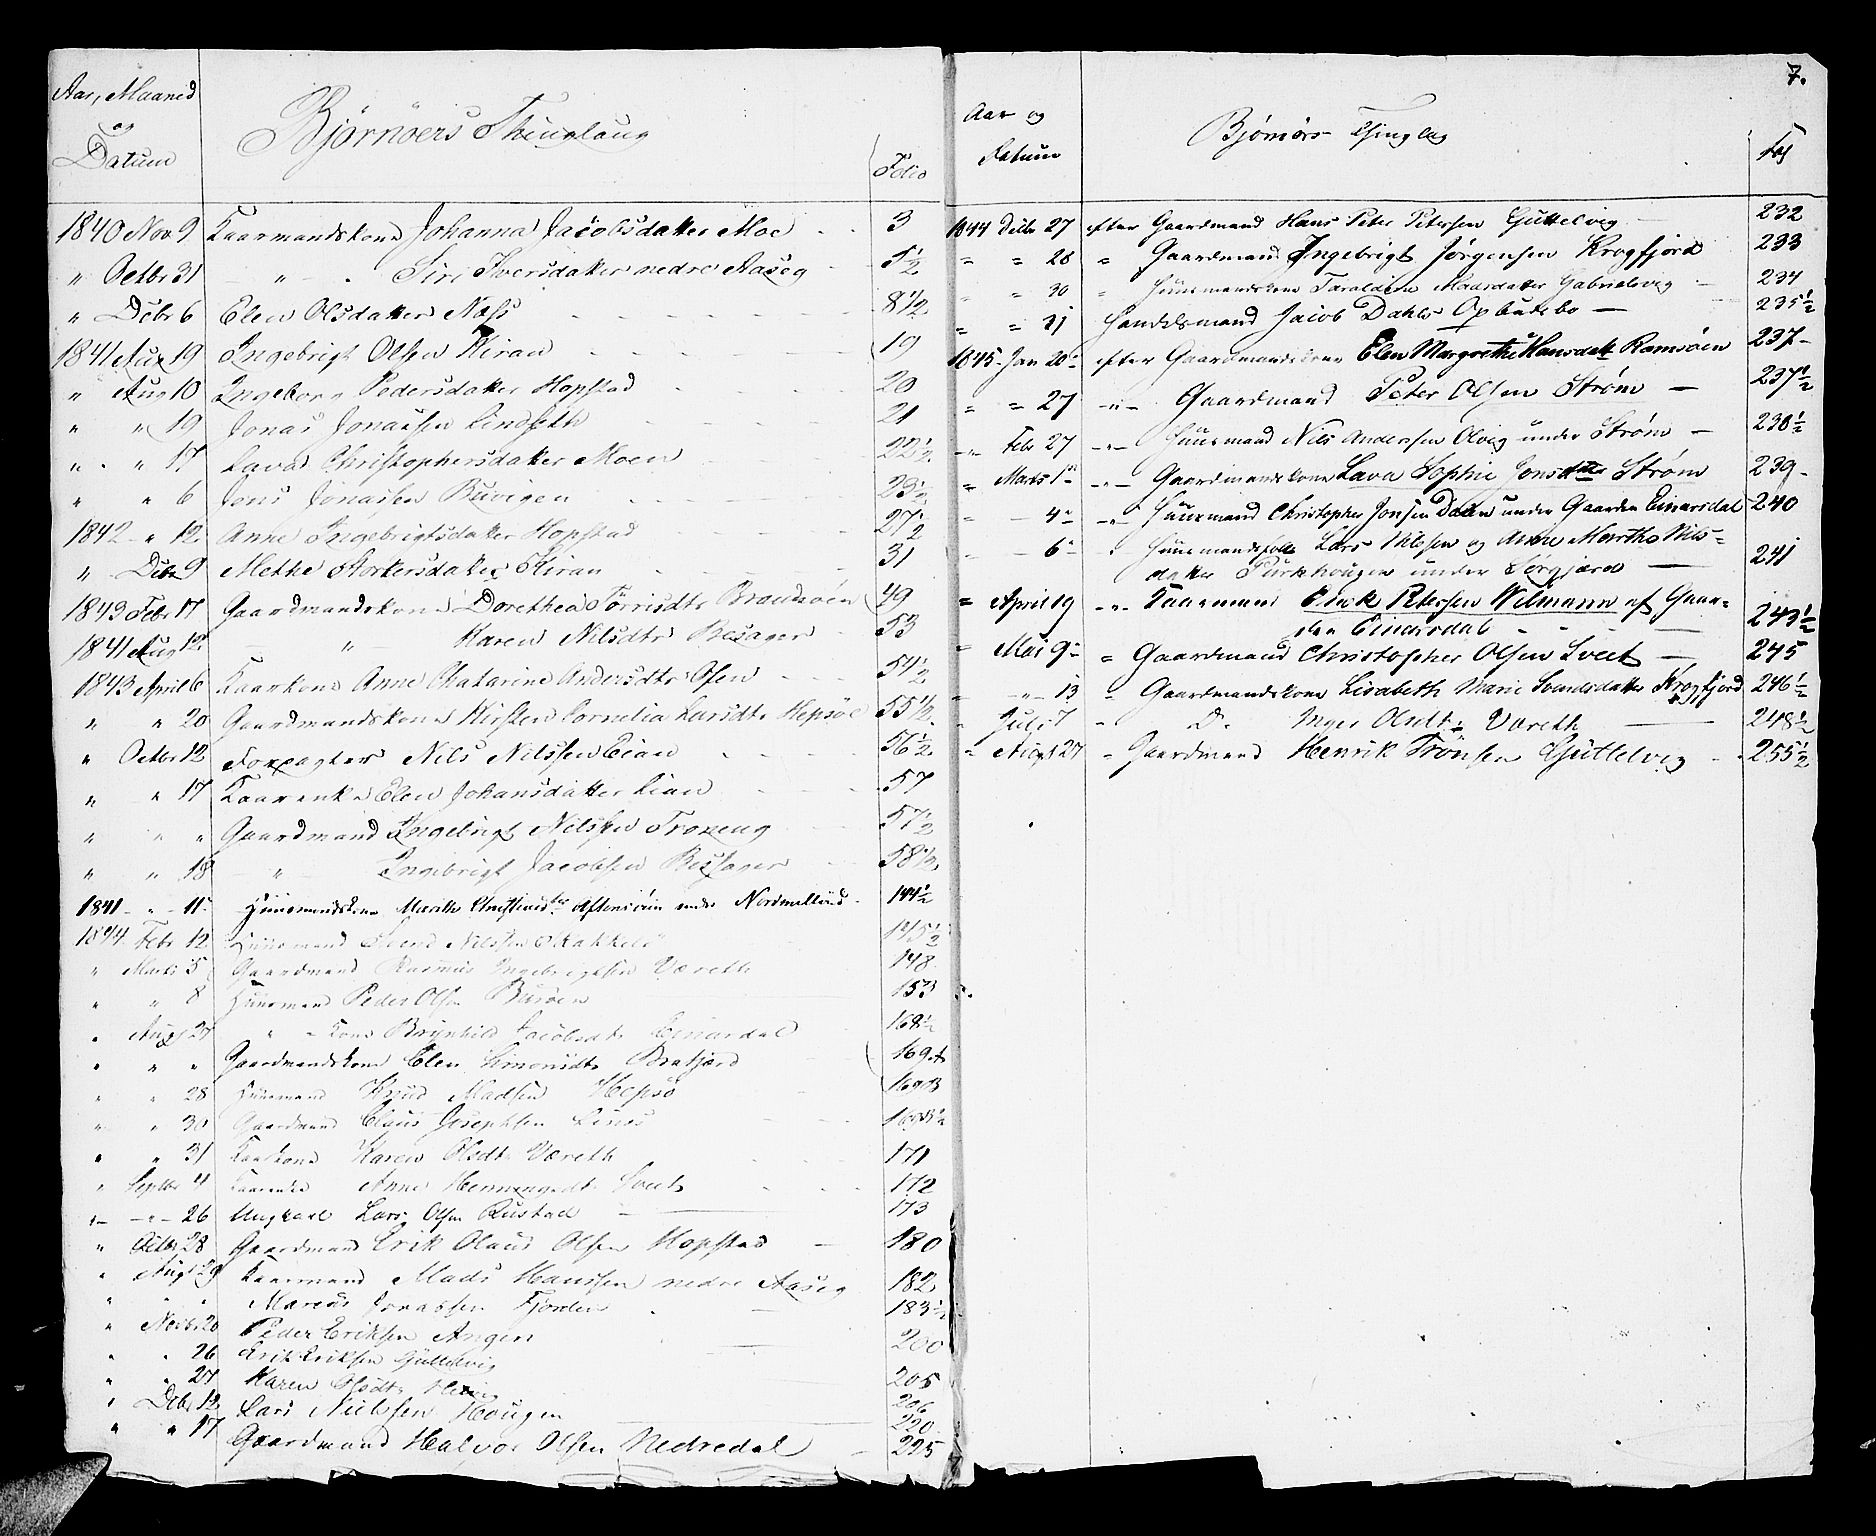 Aar, Maaned
og
Datum
Bjørnøers Thinglaug
Folio
1840 Nov 9 Kaarmandskone Johanna Jacobsdatter Moe 3
" Octbr 31 " Siri Iversdatter nedre Aaseg 5 1/2
" Debr 6 Elen Olsdatter Næss 8 1/2
1841 Aug 19 Ingebrigt Olsen Kiran 19
" Aug 10 Ingeborg Pedersdatter Hopstad 20
" " 19 Jonas Jonassen Lindseth 21
" " 17 Lava Christophersdatter Moen 22 1/2
" " 6 Jens Jonassen Buvigen 23 1/2
1842 " 12 Anne Ingebrigtsdatter Hopstad 27 1/2
" Debr 9 Methe Storkersdatter Kiran 31
1843 Febr 17 Gaardmandskone Dorethea Tørrisdtr Brandsøen 49
1841 Aug 12 " Karen Nilsdtr Besager 53
1843 April 6 Kaarkone Anne Chatarine Andersdtr Osen 54 1/2
" " 20 Gaardmandskone Kirsten Cornelia Larsdtr Hepsøe 55 1/2
" Octbr 12 Forpagter Nils Nilssen Eian 56 1/2
" " 17 Kaarenke Elen Johansdatter Lian 57
" " " Gaardmand Ingebrigt Nilssen Troneng 57 1/2
" " 18 " Ingebrigt Jacobsen Bessager 58 1/2
1841 " 11 Huusmandskone Marith under 144 1/2
1844 Febr 12 Huusmand Sivert Nilssen 145 1/2
" Marts 5 Gaardmand Rasmus Ingebrigtsen Væreth 148
" " 8 Huusmand Peder Olsen Burøen 153
" Augst 27 " Kone Brynhild Jacobsdtr Einarsdal 168 1/2
" " " Gaardmandskone Elen Simonsdtr Bratjærd 169 A
" " 28 Huusmand Knud Madsen Hepsø 169 B
" " 30 Gaardmand Claus Josephsen Linæs 169 B 1/2
" " 31 Kaarkone Karen Olsdtr Væreth 171
" Septbr 4 Kaarenke Anne Henningsdtr Sveet 172
" " 26 Ungkarl Lars Olsen Rustad 173
" Octbr 28 Gaardmand Erik Olaus Olsen Hopstad 180
" Augst 29 Kaarmand Mads Hanssen nedre Aaseg 182
" " " Marcus Jonassen Fjorden 183 1/2
" Novbr 20 Peder Eriksen Angen 200
" " 26 Erik Eriksen Guttelvig
" " 27 Karen Olsdtr 205
" Debr 12 Lars Nielsen Hougen 206
220
" " 17 Gaardmand Halvor Olsen Nedredal 225
7.
Aar og
Datum
Bjørnørs Thinglag
Fol
1844 Debr 27 efter Gaardmand Hans Peter Petersen Guttelvig 232
" " 28 " Gaardmand Ingebrigt Jørgensen Krogfjord 233
" " 30 " Huusmandskone Madsdatter Gabrielsvig 234
" " 31 Handelsmand Jacob Dahls Opbudsbo 235 1/2
1845 Jan 20 efter Gaardmandskone Elen Margrethe Hansdatt Ramsøen 237
" " 27 " Gaardmand Peter Olsen Strøm 237 1/2
" Febr 27 " Huusmand Nils Anderssen Olvig under Strøm 238 1/2
" Marts 1 " Gaardmandskone Lava Sophie Jonsdtr Strøm 239
" " 4 " Huusmand Christopher Jonsen Daln under Gaarden Einarsdal 240
" " 6 " Huusmandsfolk Lars Nilsen og Anne Martha Nils=
datter under Sørgjærd 241
" April 19 " Kaarmand Erik Petersen Wilmann af Gaar=
den Einarsdal 243 1/2
" Mai 9 " Gaardmand Christopher Olsen Sveet 245
" " 13 " Gaardmandskone Lisabeth Marie Svendsdatter Krogfjord 246 1/2
" Juli 7 " Do Inger Olsdtr Væreth 248 1/2
" Augst 27 " Gaardmand Henrik Trønsen Guttelvig 255 1/2